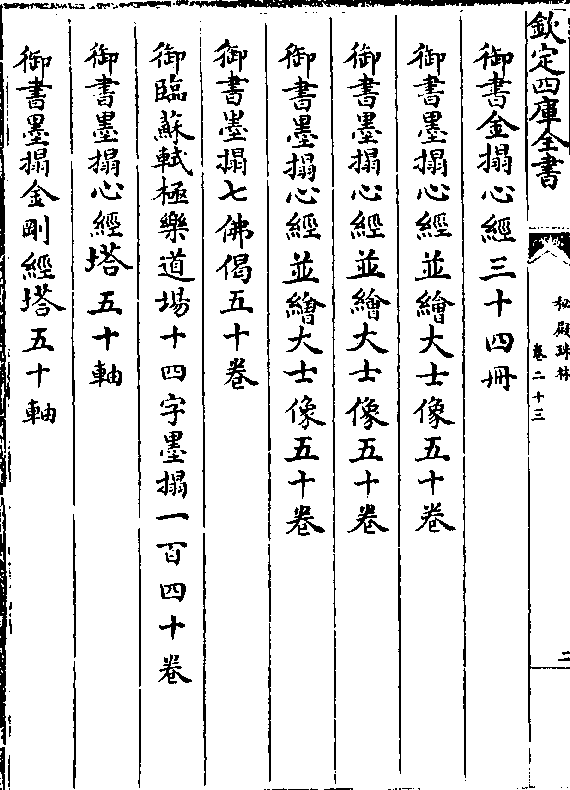 欽定四庫全書
秘殿珠林
卷二十三
二
御書金搨心經三十四冊
御書墨搨心經並繪大士像五十卷
御書墨搨心經並繪大士像五十卷
御書墨搨心經並繪大士像五十卷
御書墨搨七佛偈五十卷
御臨蘇軾極樂道場十四字墨搨一百四十卷
御書墨搨心經塔五十軸
御書墨搨金剛經塔五十軸